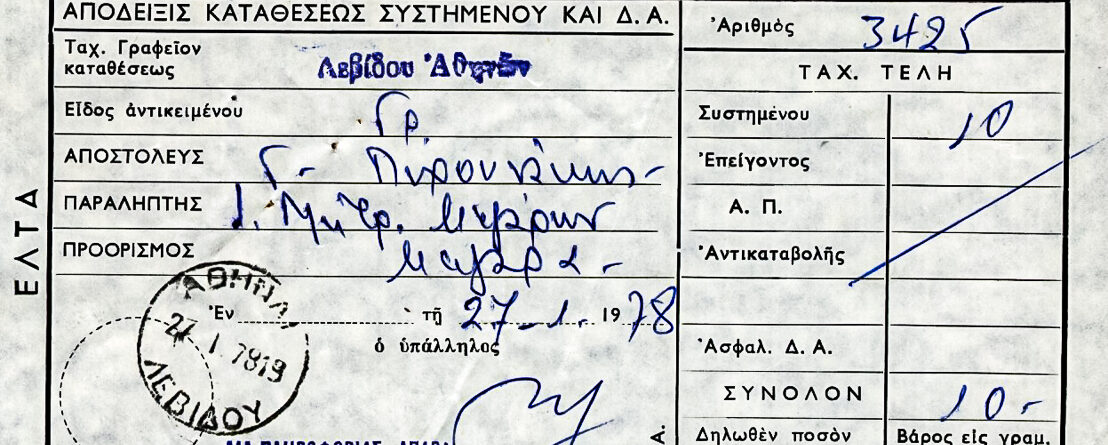 ΑΠΟΔΕΙΞΙΣ ΚΑΤΑΘΕΣΕΩΣ ΣΥΣΤΗΜΕΝΟΥ ΚΑΙ Δ. Α.
Ἀριθμὸς 3425
Ταχ. Γραφεῖον
καταθέσεως
Λεβίδου Ἀθηνῶν
ΤΑΧ. ΤΕΛΗ
Εἶδος ἀντικειμένου Γρ.
Συστημένου 10
ΑΠΟΣΤΟΛΕΥΣ Γ-
Ἐπείγοντος
ΠΑΡΑΛΗΠΤΗΣ Ι. Μητρ. Μεγάρων
Α. Π.
ΠΡΟΟΡΙΣΜΟΣ Μέγαρα -
Ἀντικαταβολῆς
ΕΛΤΑ
Ἐν τῇ 27-1. 1978
ὁ ὑπάλληλος
Ἀσφαλ. Δ. Α.
ΣΥΝΟΛΟΝ 10-
Δηλωθὲν ποσὸν
Βάρος εἰς γραμ.
ΑΘΗΝΑΙ
ΛΕΒΙΔΟΥ